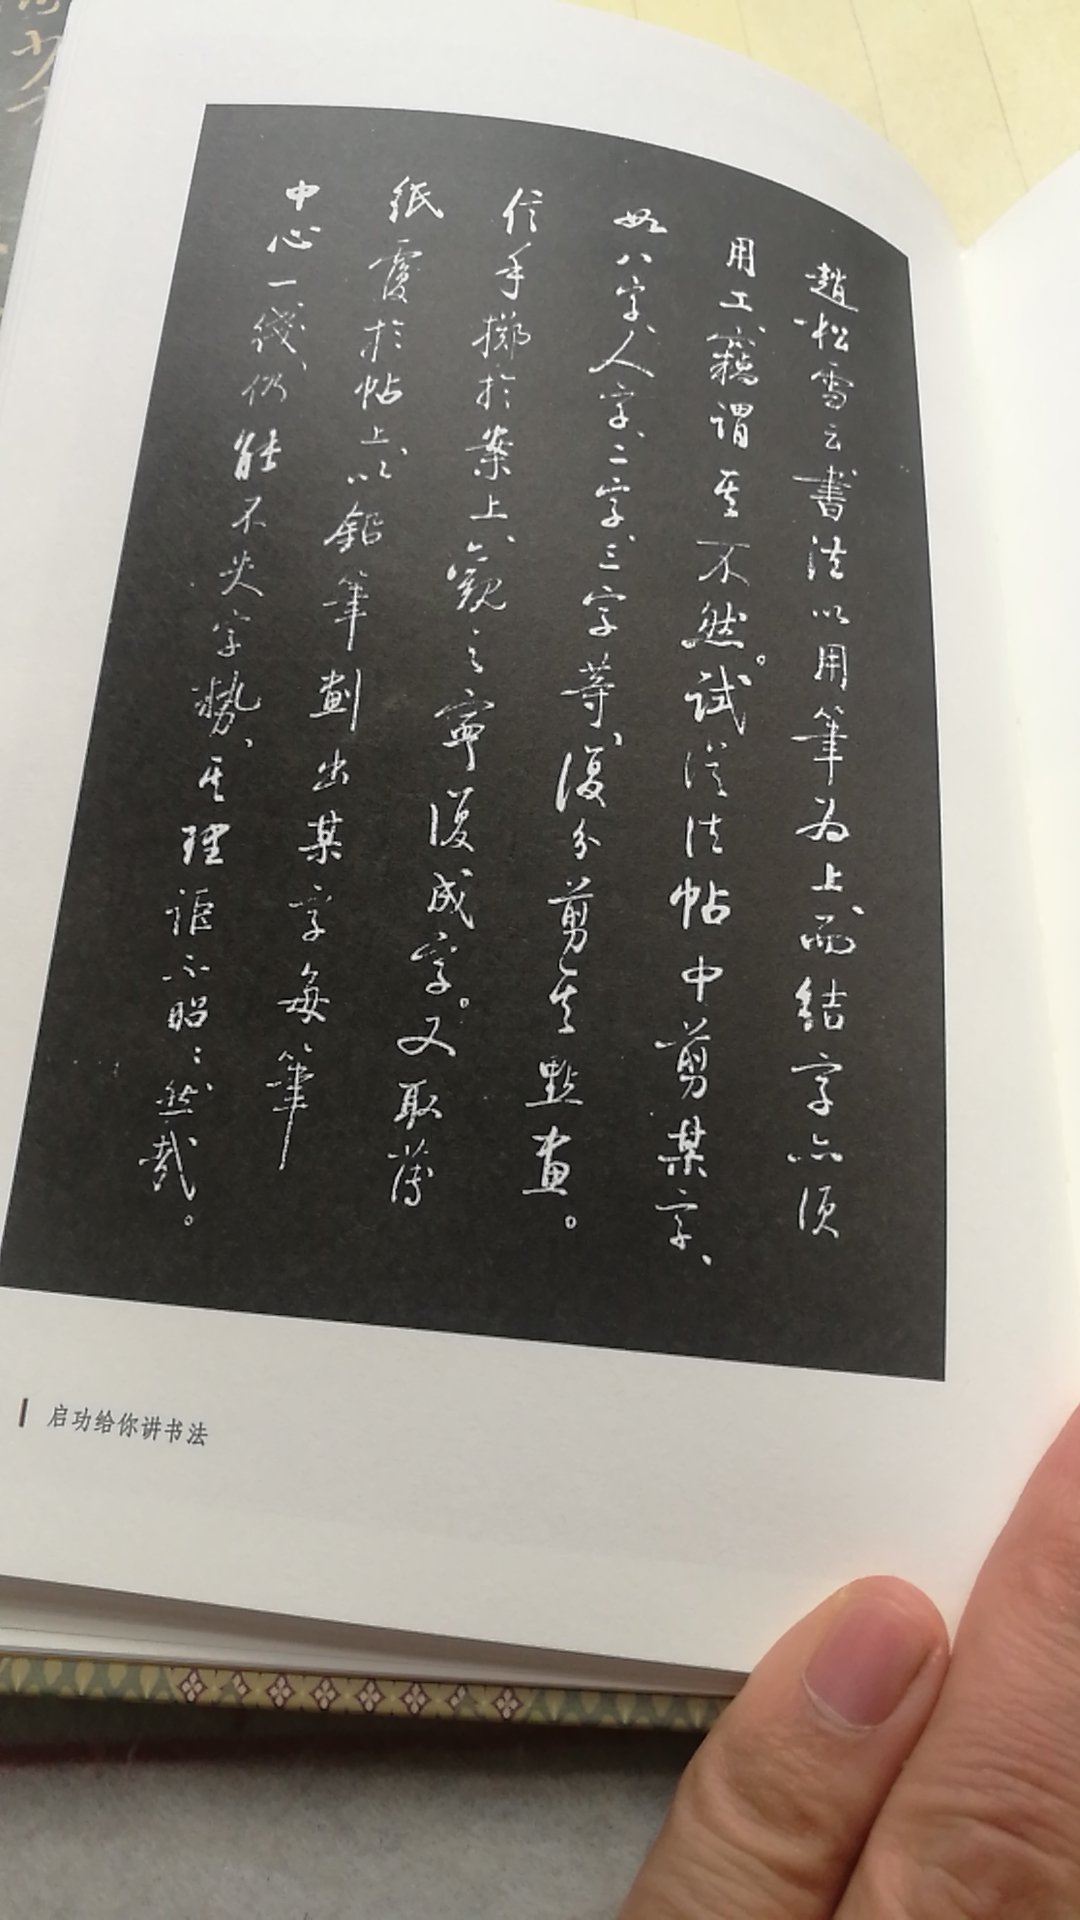 趙松雪云書法以用筆為上、而結字亦須
用工、竊謂其不然。試從法帖中剪某字、
如八字、人字、二字、三字等、復分剪其點畫。
信手擲於案上、觀之寧復成字。又取薄
紙覆於帖上、以鉛筆劃出某字每筆
中心一綫、仍能不失字勢、其理詎不昭:然哉。
启功给你讲书法